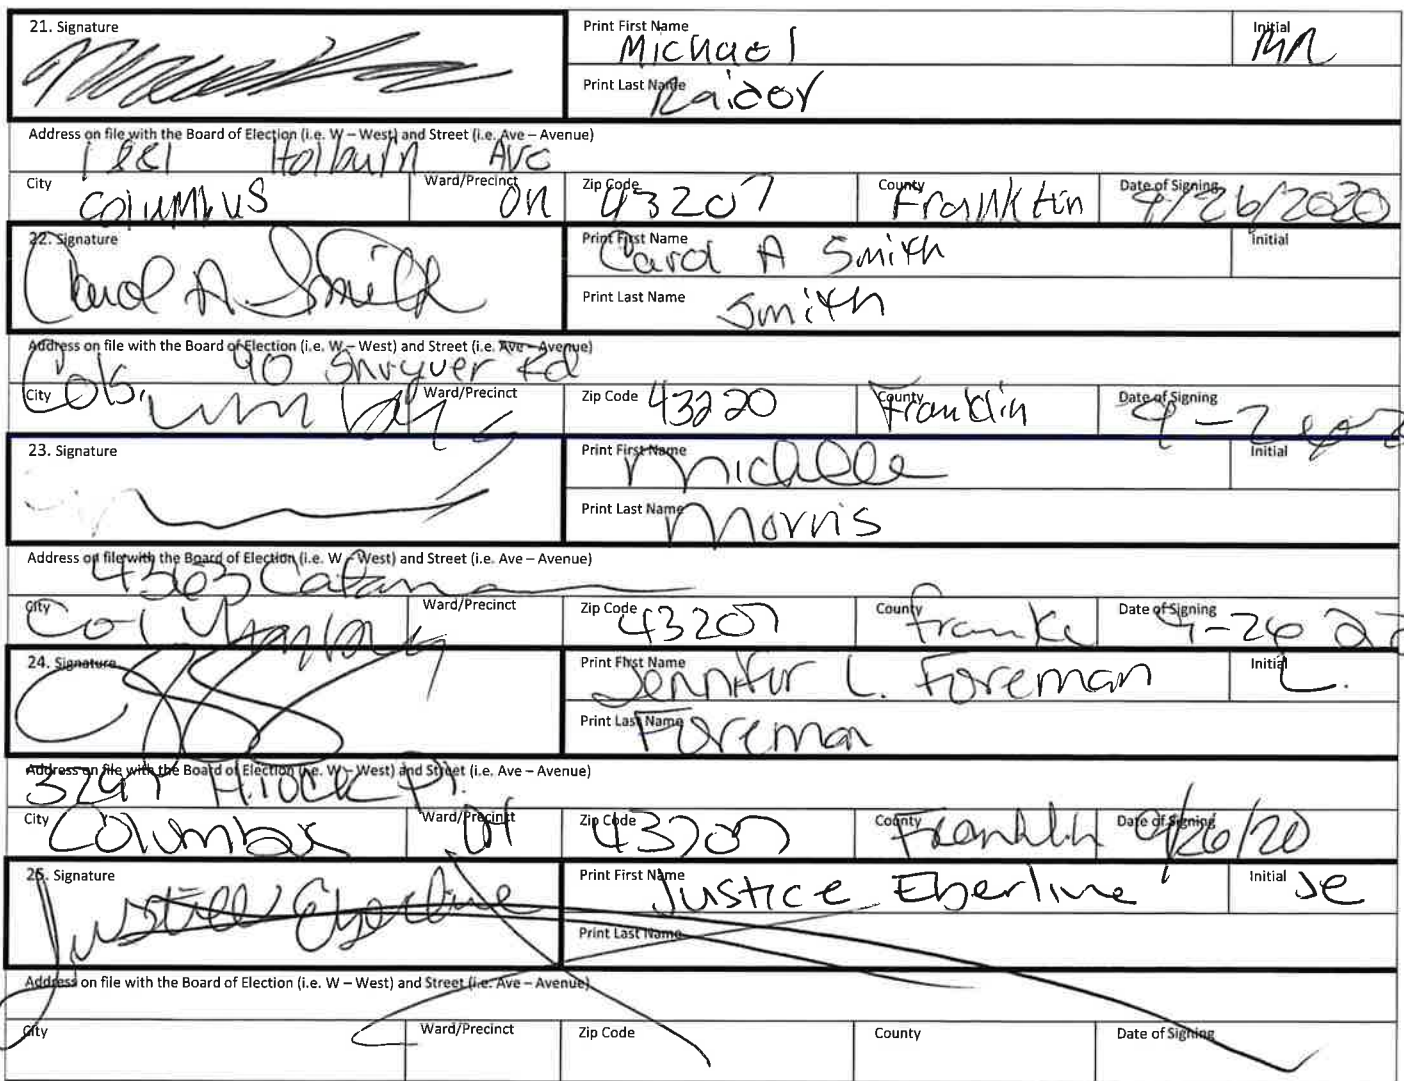 21. Signature Print First Name Michael Initial MR
Print Last Name Raidor
Address on file with the Board of Election (i.e. W – West) and Street (i.e. Ave – Avenue)
Holburn Ave
City Columbus Ward/Precinct OH Zip Code 43207 County Franklin Date of Signing 9/26/2020
22. Signature Carol A. Smith Print First Name Carol A Smith Initial
Print Last Name Smith
Address on file with the Board of Election (i.e. W – West) and Street (i.e. Ave – Avenue)
90 Shryver Rd
City Cols, Ward/Precinct Zip Code 43220 County Franklin Date of Signing
23. Signature Print First Name Michelle Initial
Print Last Name Morris
Address on file with the Board of Election (i.e. W – West) and Street (i.e. Ave – Avenue)
4363
City Ward/Precinct Zip Code 43207 County Date of Signing 9-26
24. Signature Print First Name Jennifer L. Foreman Initial L.
Print Last Name Foreman
Address on file with the Board of Election (i.e. W – West) and Street (i.e. Ave – Avenue)
Pl.
City Columbus Ward/Precinct OH Zip Code 43207 County Franklin Date of Signing 9/26/20
25. Signature Justice Eberline Print First Name Justice Eberline Initial JE
Print Last Name
Address on file with the Board of Election (i.e. W – West) and Street (i.e. Ave – Avenue)
City Ward/Precinct Zip Code County Date of Signing